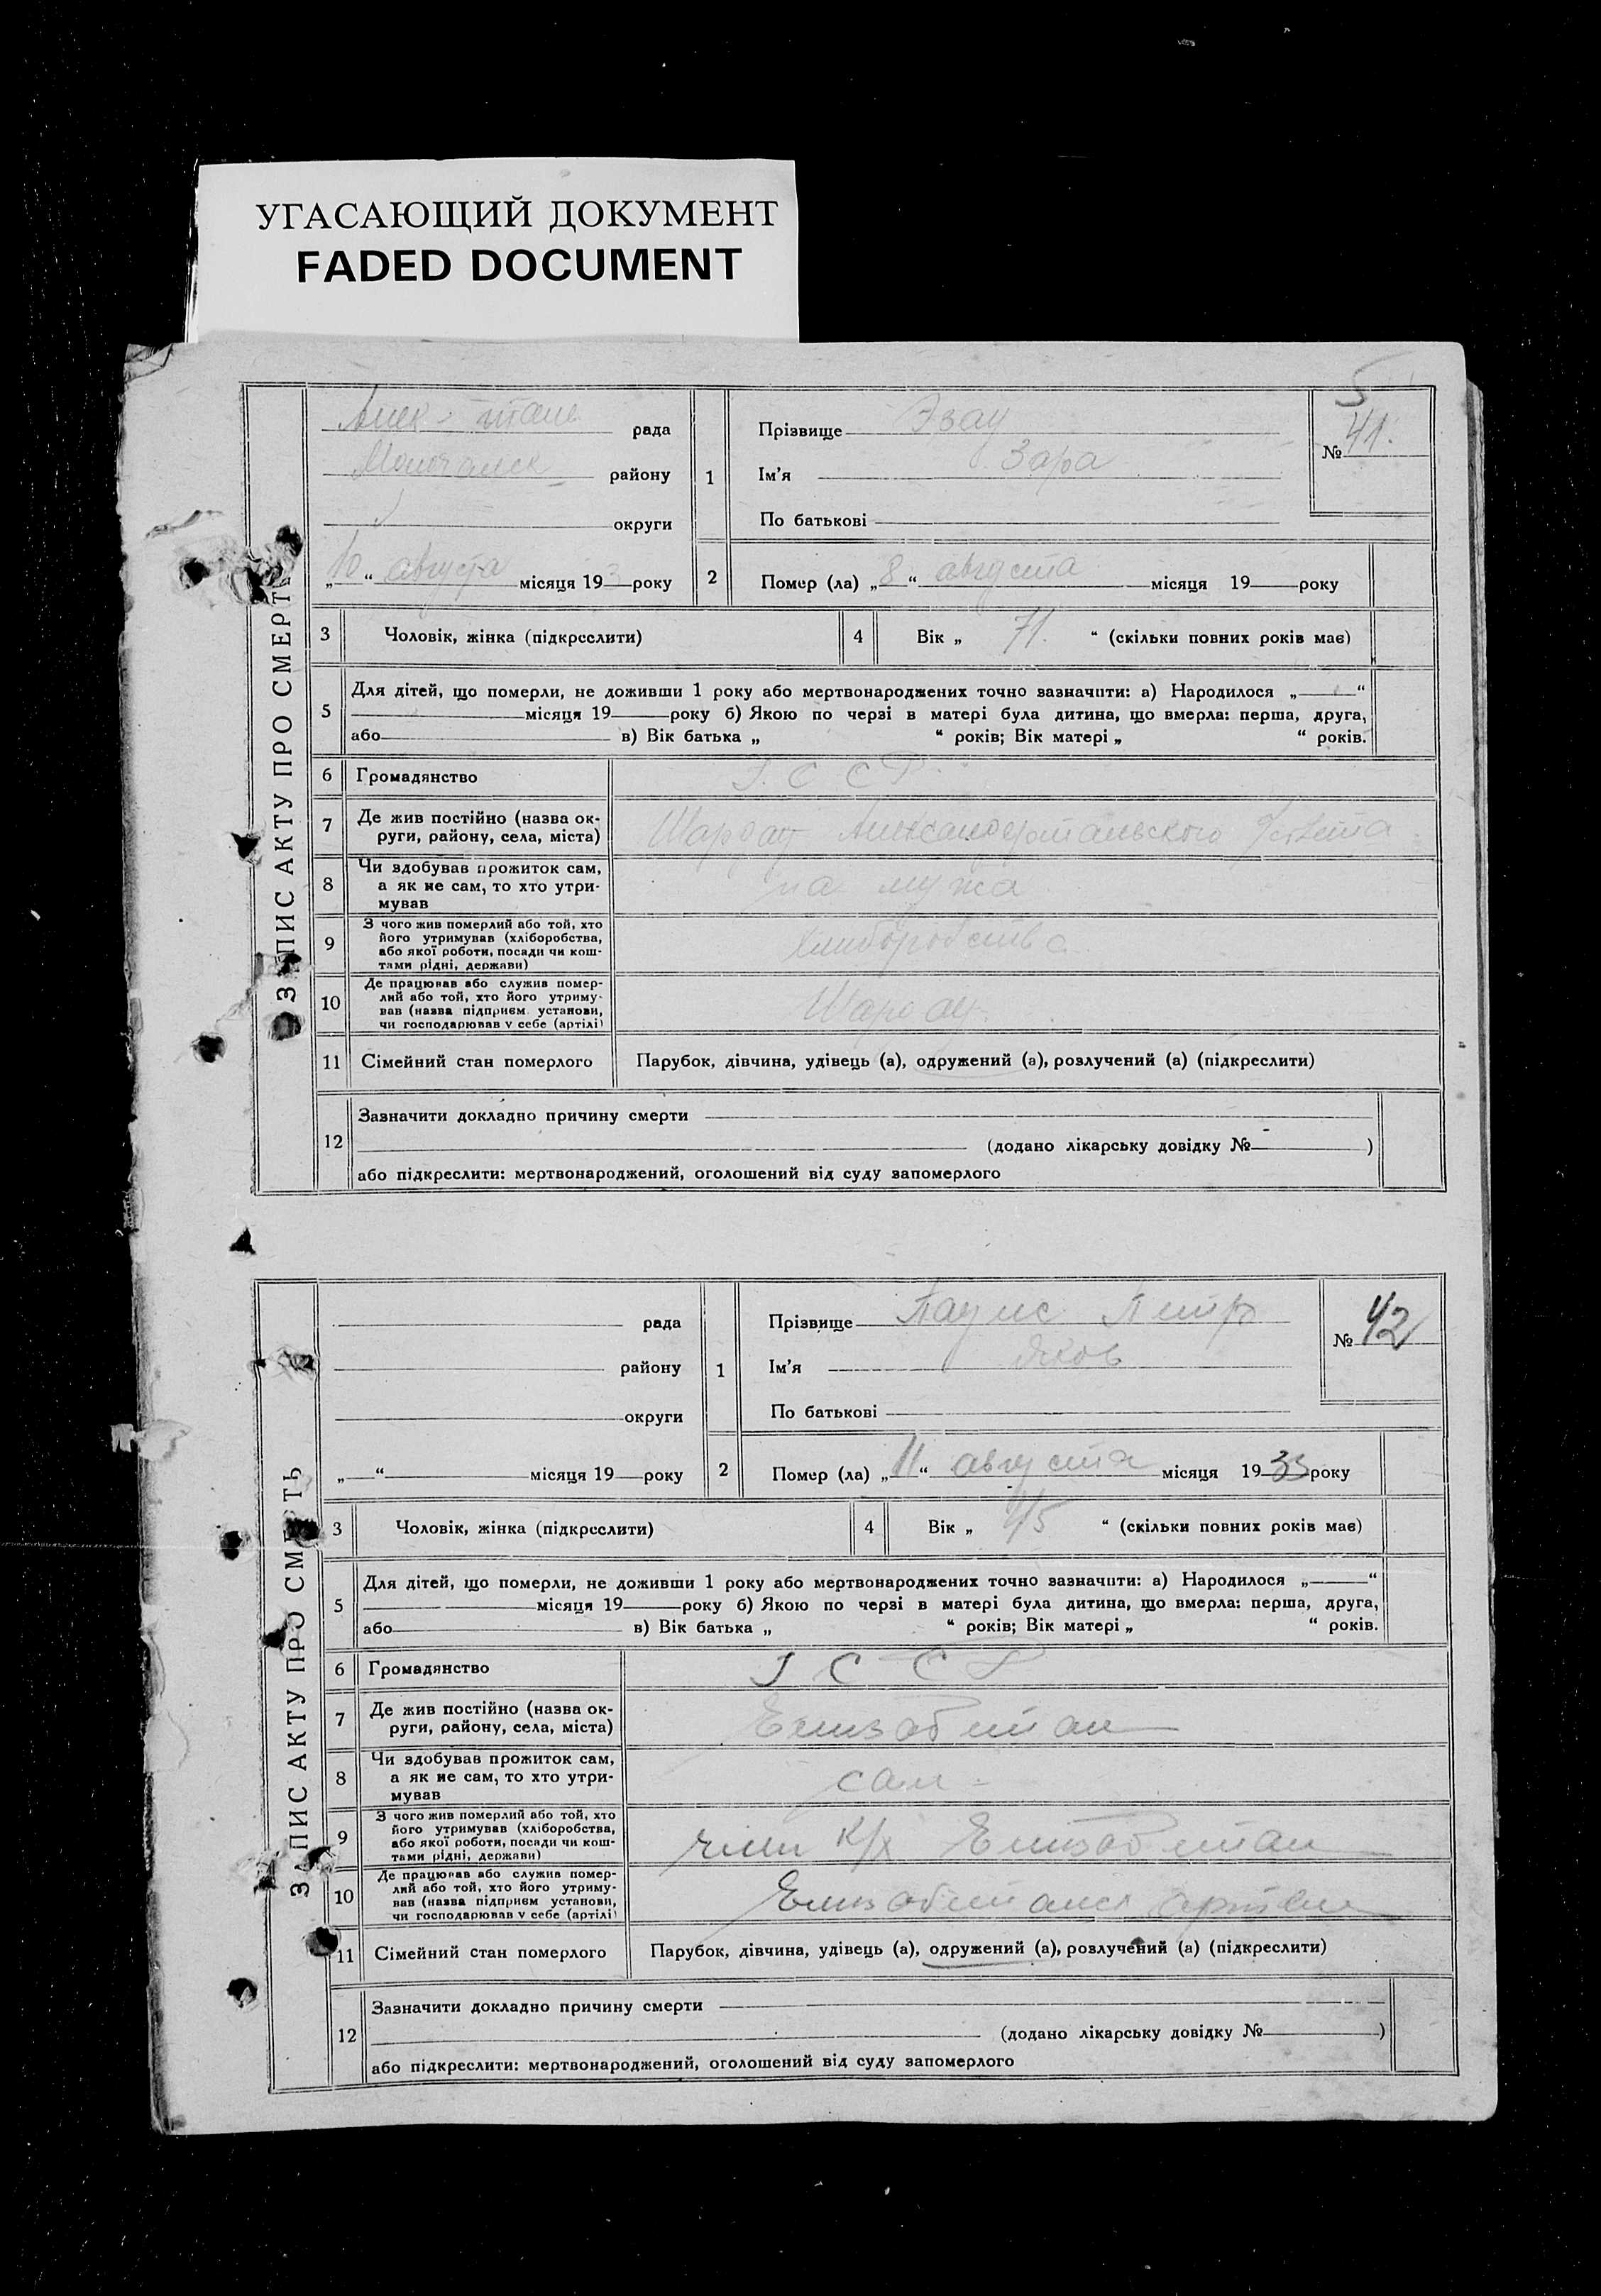 УГАСАЮЩИЙ ДОКУМЕНТ
FADED DOCUMENT
5
ЗАПИС АКТУ ПРО СМЕРТЬ
рада
району
округи
„10“ августа місяця 193 року
1
Прізвище Эзау
Ім'я Зара
По батькові
№ 41.
2
Помер (ла) „8“ августа місяця 19 року
3 Чоловік, жінка (підкреслити)
4 Вік „ 71. “ (скільки повних років має)
5
Для дітей, що померли, не доживши 1 року або мертвонароджених точно зазначити: а) Народилося „ “
місяця 19 року б) Якою по черзі в матері була дитина, що вмерла: перша, друга,
або в) Вік батька „ “ років; Вік матері „ “ років.
6 Громадянство У. С С Р.
7 Де жив постійно (назва ок-
руги, району, села, міста)
Шардау
8 Чи здобував прожиток сам,
а як не сам, то хто утри-
мував
на мужа
9 З чого жив померлий або той, хто
його утримував (хліборобства,
або якої роботи, посади чи кош-
тами рідні, держави)
10 Де працював або служив помер-
лий або той, хто його утриму-
вав (назва підприєм. установи,
чи господарював у себе (артілі)
Шардау.
11 Сімейний стан померлого Парубок, дівчина, удівець (а), одружений (а), розлучений (а) (підкреслити)
12
Зазначити докладно причину смерти
(додано лікарську довідку № )
або підкреслити: мертвонароджений, оголошений від суду запомерлого
ЗАПИС АКТУ ПРО СМЕРТЬ
рада
району
округи
„ “ місяця 19 року
1
Прізвище Паулс Петр
Ім'я Яков
По батькові
№ 42
2
Помер (ла) „11“ августа місяця 1933 року
3 Чоловік, жінка (підкреслити)
4 Вік „ 45 “ (скільки повних років має)
5
Для дітей, що померли, не доживши 1 року або мертвонароджених точно зазначити: а) Народилося „ “
місяця 19 року б) Якою по черзі в матері була дитина, що вмерла: перша, друга,
або в) Вік батька „ “ років; Вік матері „ “ років.
6 Громадянство У С С Р
7 Де жив постійно (назва ок-
руги, району, села, міста)
Елизабеттал
8 Чи здобував прожиток сам,
а як не сам, то хто утри-
мував
сам -
9 З чого жив померлий або той, хто
його утримував (хліборобства,
або якої роботи, посади чи кош-
тами рідні, держави)
член к/х Елизабеттал
10 Де працював або служив помер-
лий або той, хто його утриму-
вав (назва підприєм установи,
чи господарював у себе (артілі)
11 Сімейний стан померлого Парубок, дівчина, удівець (а), одружений (а), розлучений (а) (підкреслити)
12
Зазначити докладно причину смерти
(додано лікарську довідку № )
або підкреслити: мертвонароджений, оголошений від суду запомерлого